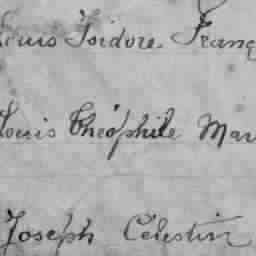 Louis Isidore Franç
Louis Théophile Mar
Joseph Célestin